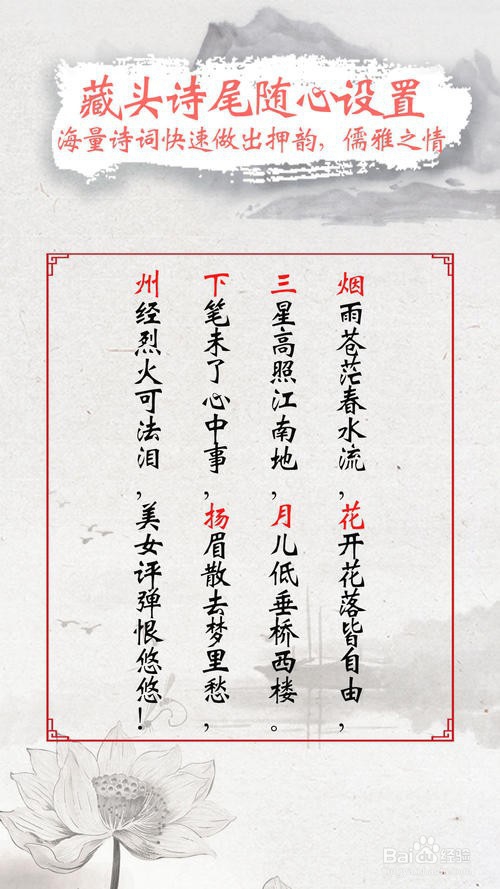 藏头诗尾随心设置
海量诗词快速做出押韵，儒雅之情
烟雨苍茫春水流，花开花落皆自由，
三星高照江南地，月儿低垂桥西楼。
下笔未了心中事，扬眉散去梦里愁，
州经烈火可法泪，美女评弹恨悠悠！
Baidu经验